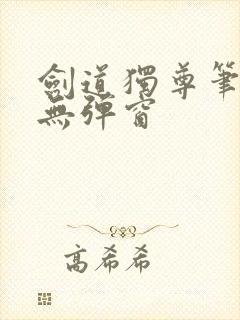 劍道獨尊筆
無彈窗
高希希